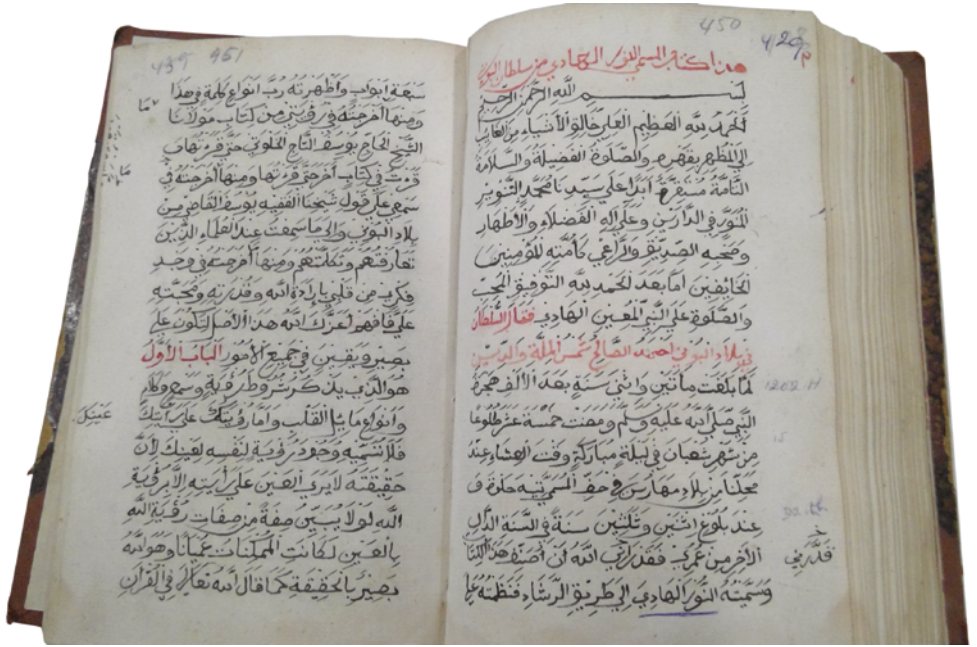 450
هذا كتاب المسمى النور الهادي من سلطان البوني
بسم الله الرحمن الرحيم
الحمد لله العظيم العارج خالق الأشياء من الغايب
الى المظهر بقهره والصلوة الفضيلة والسلامة
التامة مستقرة أبدا على سيدنا محمد التنوير
المنور في الدارين وعلى آله الفضلاء والأطهار
وصحبه الصديق والراغبى كأمته للمؤمنين
الخايفين أما بعد لحمد لله التوفيق المحب
والصلوة على النبي المعين الهادي فقال السلطان
في بلاد البوني احمد الصالح شمس الملة والدين
لما بلغت مائتين واثني سنة بعد الألف هجرة
1202 H
النبي صلى الله عليه وسلم ومضت خمسة عشر طلوعا
15
من شهر شعبان في ليلة مباركة وقت العشاء عند
محلنا من بلاد مهارس في حق المسمى
عند بلوغ اثنين وثلثين سنة في السنة الدال
الآخر من عمري فقدرني الله أن أصنف هذا الكتاب
قدرني
وسميته النور الهادي إلى طريق الرشاد فنظمته على
439 451
سبعة أبواب وأظهرته رب انواع كلمة في هذا
ما
ومنها أخرجته في رقيتي من كتاب مولانا
الشيخ الحاج يوسف التاج الخلوتي حتى قرئها في
قرءت في كتاب أخر حتى قرءتها ومنها أخرجته في
ما
سمعي على قول شيخنا الفقيه يوسف القاضي من
بلاد البوني والى ما سمعت عند العلماء الذين
تعارفتهم وتكلمتهم ومنها أخرجته في وجد
فكري من قلبي بإرادة الله وقدرته ومحبته
علي فافهم أعزك الله هذا الأصل لتكون على
بصير ويقين في جميع الأمور الباب الأول
هو الذي يذكر سر وطر رؤية وسمع وكلام
وأنواع مايل القلب وأما رؤيتك على رأيتك
عينك
فلا تسميه وجود رؤية لنفسه لعينك لأن
حقيقته لا يرى العين على رأيته إلا برؤية
الله لولا يبين صفة من صفات رؤية الله
بالعين لكانت الممكنات عميانا وهو الله
بصير بالحقيقة كما قال الله تعالى في القرآن